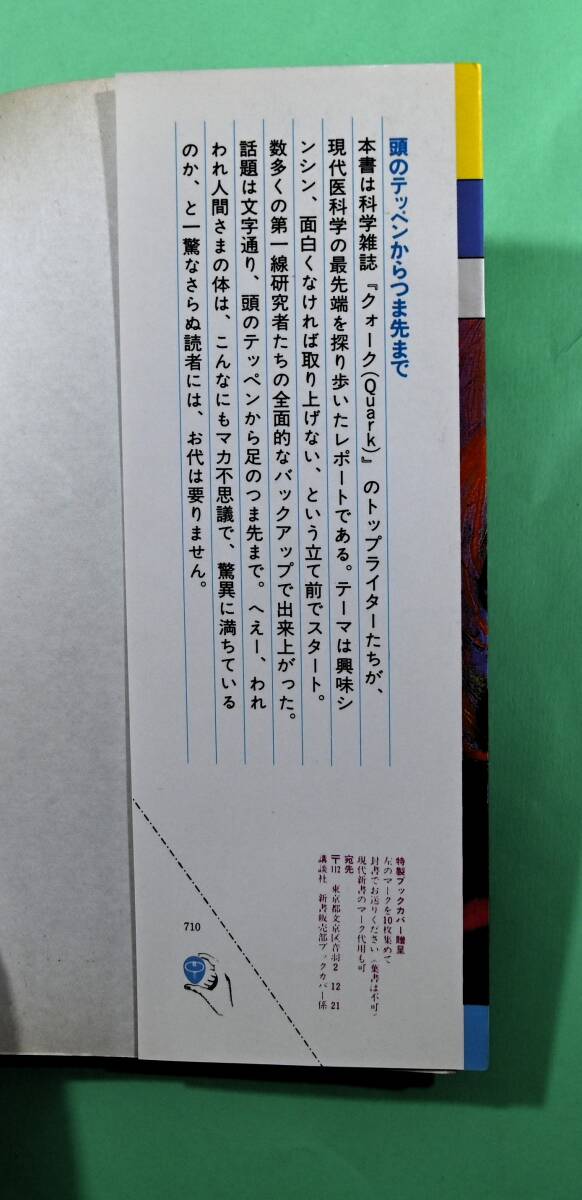 頭のテッペンからつま先まで
本書は科学雑誌『クォーク(Quark)』のトップライターたちが、
現代医科学の最先端を探り歩いたレポートである。テーマは興味シ
ンシン、面白くなければ取り上げない、という立て前でスタート。
数多くの第一線研究者たちの全面的なバックアップで出来上がった。
話題は文字通り、頭のテッペンから足のつま先まで。へえー、われ
われ人間さまの体は、こんなにもマカ不思議で、驚異に満ちている
のか、と一驚なさらぬ読者には、お代は要りません。
特製ブックカバー贈呈
左のマークを10枚集めて
封書でお送りください(葉書は不可)
現代新書のマーク代用も可
宛先
〒112 東京都文京区音羽2-12-21
講談社 新書販売部ブックカバー係
710